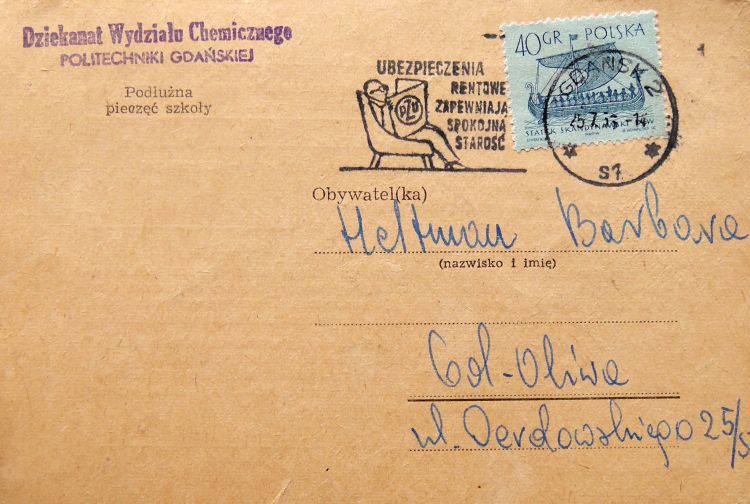 Dziekanat Wydziału Chemicznego
POLITECHNIKI GDAŃSKIEJ
Podłużna
pieczęć szkoły
UBEZPIECZENIA
RENTOWE
ZAPEWNIAJĄ
SPOKOJNĄ
STAROŚĆ
PZU
40GR POLSKA
GDAŃSK 2
S1
Obywatel(ka)
Heltman Barbara
(nazwisko i imię)
Gd-Oliwa
ul. Derdowskiego 25/5